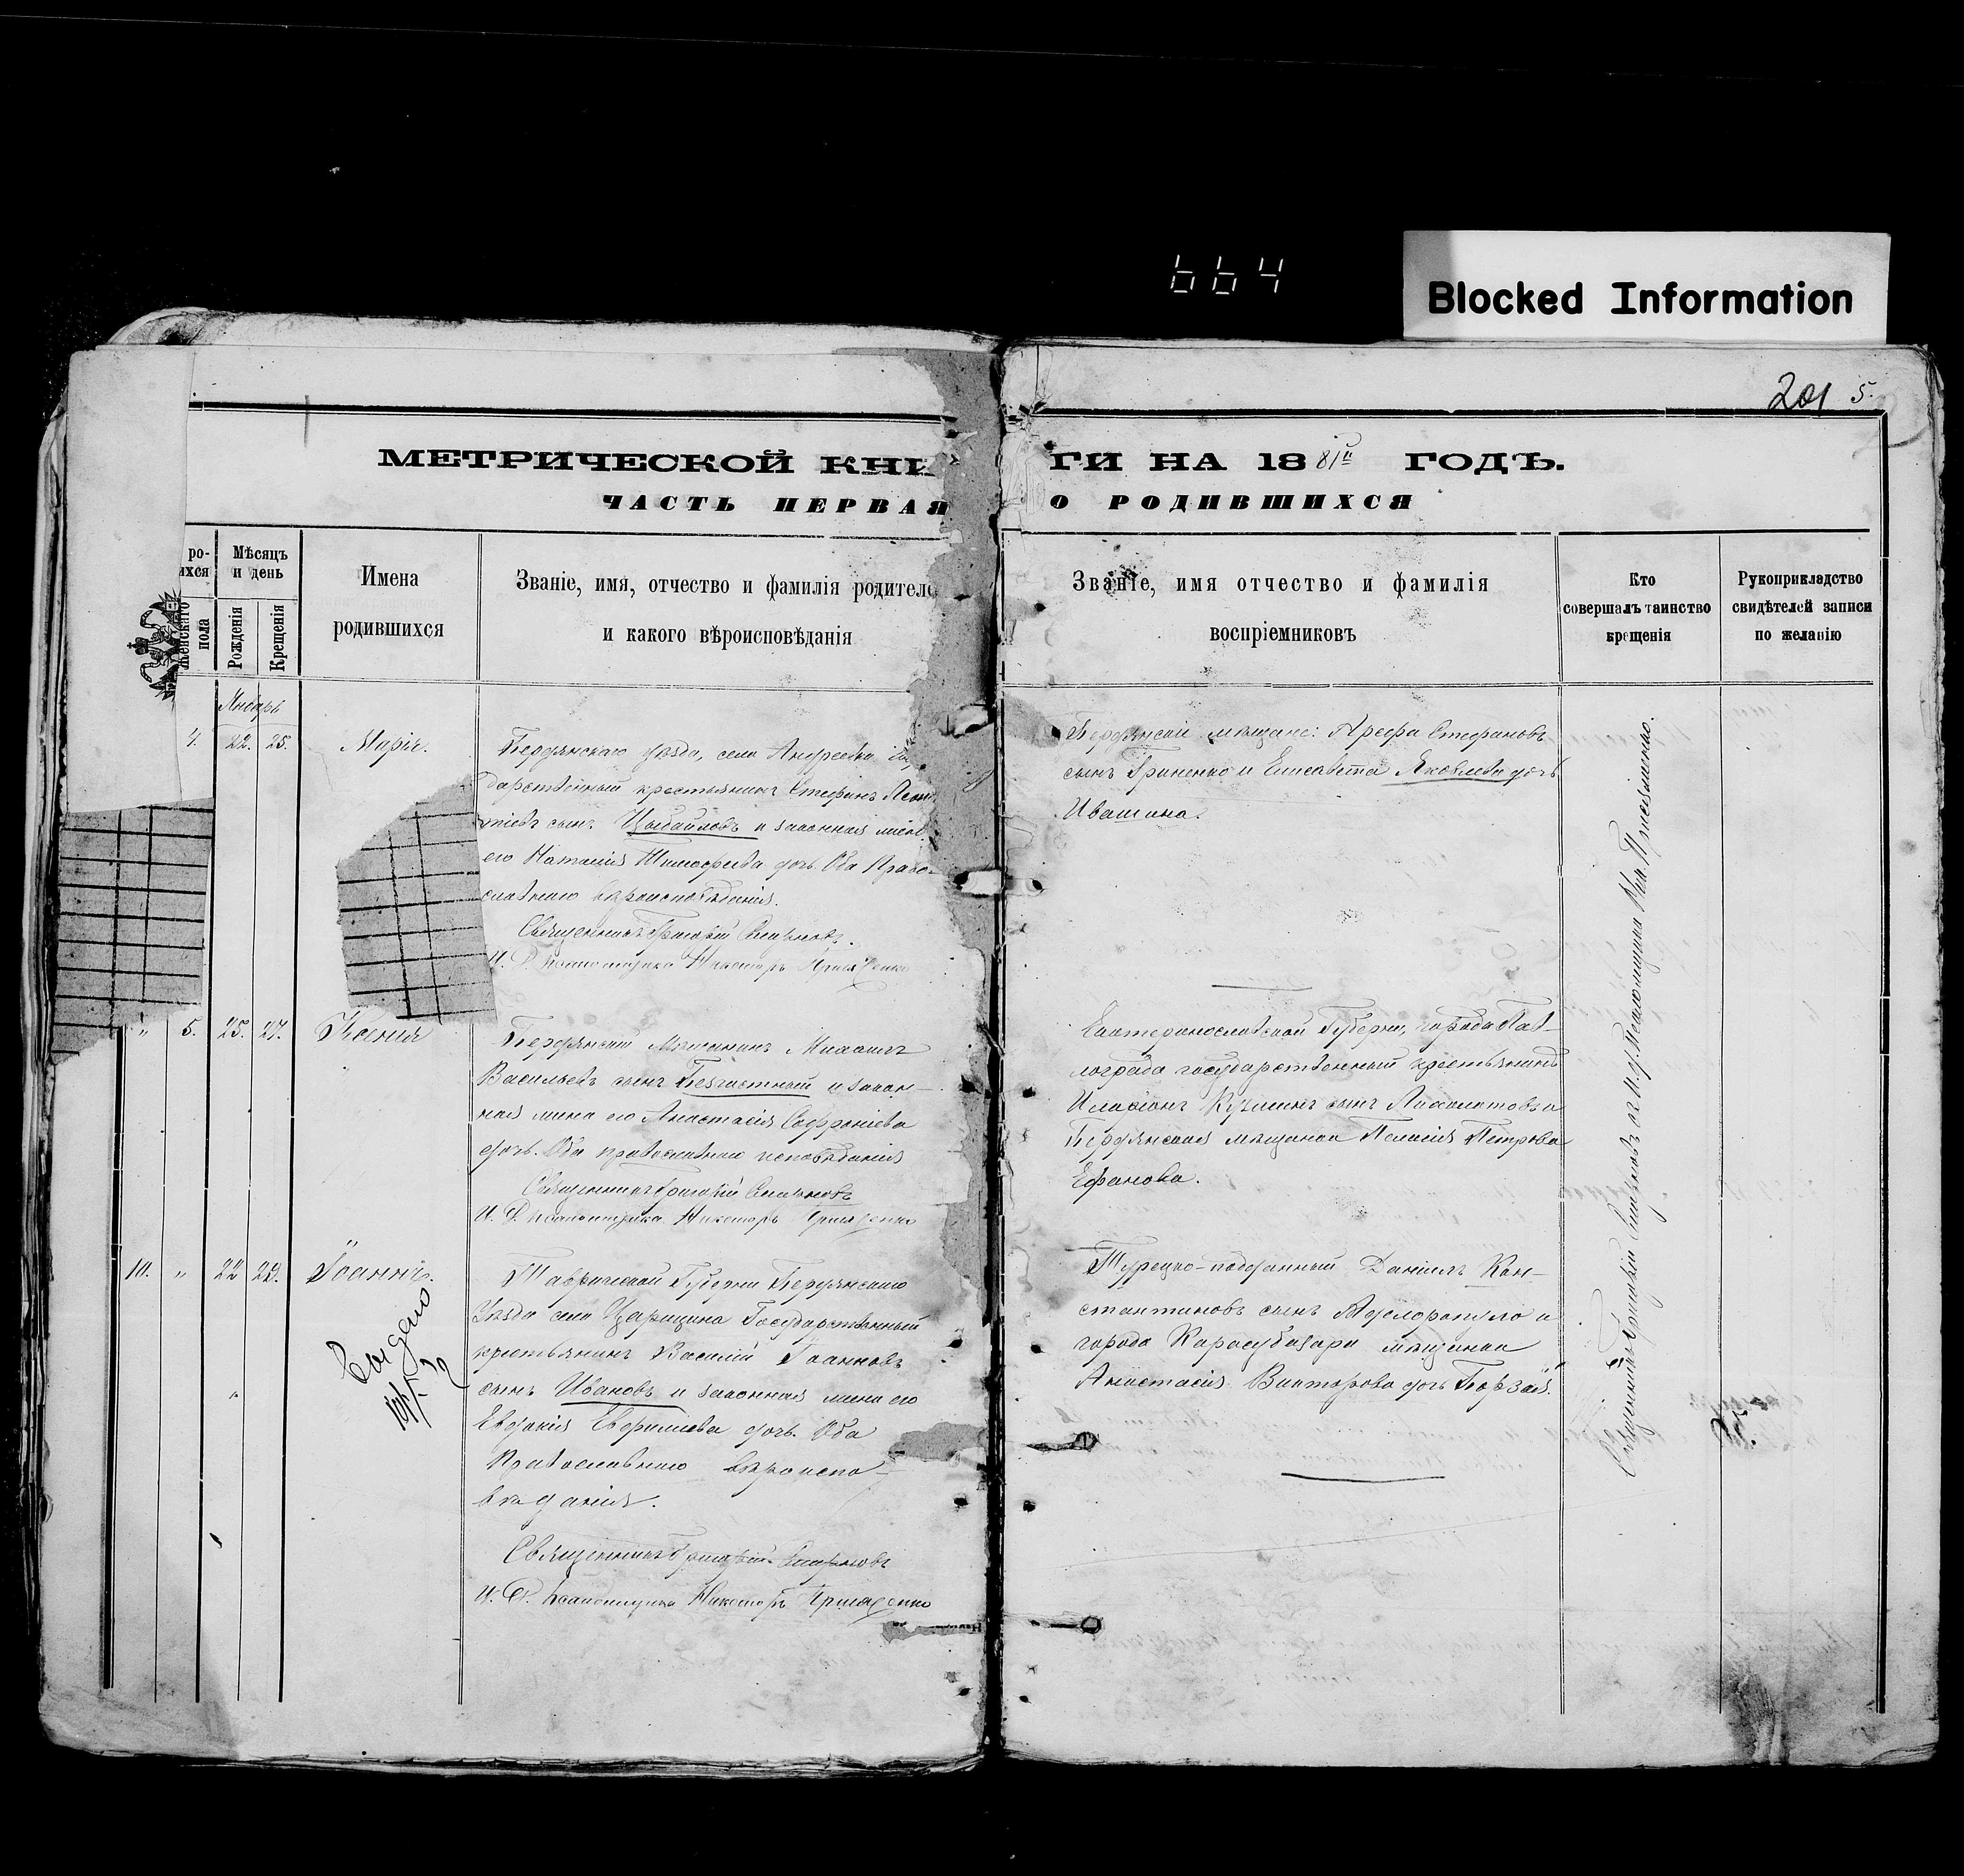 664
Blocked Information
201 5.
МЕТРИЧЕСКОЙ КНИ
ГИ НА 1881й ГОДЪ.
ЧАСТЬ ПЕРВАЯ
О РОДИВШИХСЯ
ро-
ихся
Женскаго пола
Мѣсяцъ и день
Рожденія
Крещенія
Имена родившихся
Званіе, имя, отчество и фамилія родителе
и какого вѣроисповѣданія
Званіе, имя отчество и фамилія
воспріемниковъ
Кто
совершалъ таинство
крещенія
Рукоприкладство
свидѣтелей записи
по желанію
Январь
4. 22. 25. Марія.
Бердянскаго уѣзда, села Андреевки
дарственный крестьянинъ Стефанъ
сынъ и законная
его Наталія Тимофеева дочь. Оба Право-
славнаго вѣроисповѣданія.
Священникъ Григорій
И. Д. Псаломщика Никоноръ
Бердянскіе мѣщане: Арефа Стефановъ
сынъ Гриненко и Елисавета Яковлева дочь
Ивашина.
" 5. 25. 27. Ксенія
Бердянскій Мѣщанинъ Михаилъ
Васильевъ сынъ Безчастный и закон-
ная жена его Анастасія Софроніева
дочь. Оба православнаго исповѣданія
Священникъ Григорій
И. Д. Псаломщика Никоноръ
Екатеринославской Губерніи, города Пав-
лограда государственный крестьянинъ
Иларіонъ Кузминъ сынъ и
Бердянская мѣщанка Пелагія Петрова
Ефанова.
10. " 22 29. Іоаннъ.
Выдано
Таврической Губерніи Бердянскаго
Уѣзда села Царицина Государственный
крестьянинъ Василій Іоанновъ
сынъ Ивановъ и законная жена его
Евдокія Евфиміева дочь. Оба
Православнаго вѣроиспо-
вѣданія.
Священникъ Григорій
И. Д. Псаломщика Никоноръ
Турецко-подданный Даніилъ Кон-
стантиновъ сынъ и
города Карасубазара мѣщанка
Анастасія Викторова дочь
Священникъ Григорій